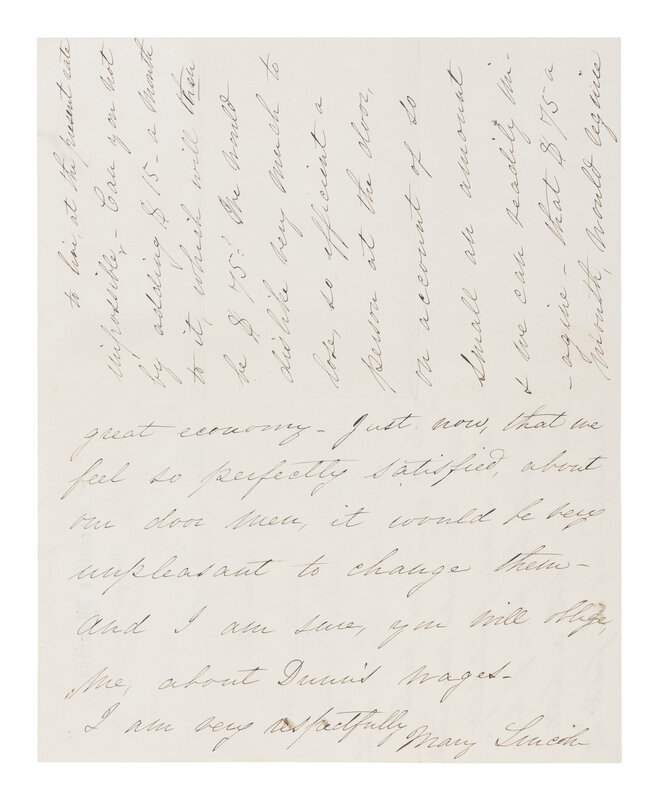 to live, at the present rate
impossible, - Can you not
by adding $ 15 - a month
to it, which will then
be $ 75? We would
dislike very much to
lose, so efficient a
person at the door,
on account of so
small an amount
& we can readily im-
- agine - that $ 75 a
month, would require
great economy - Just now, that we
feel so perfectly satisfied, about
our door men, it would be very
unpleasant to change them -
And I am sure, you will oblige,
me, about Dunn's wages -
I am very respectfully
Mary Lincoln